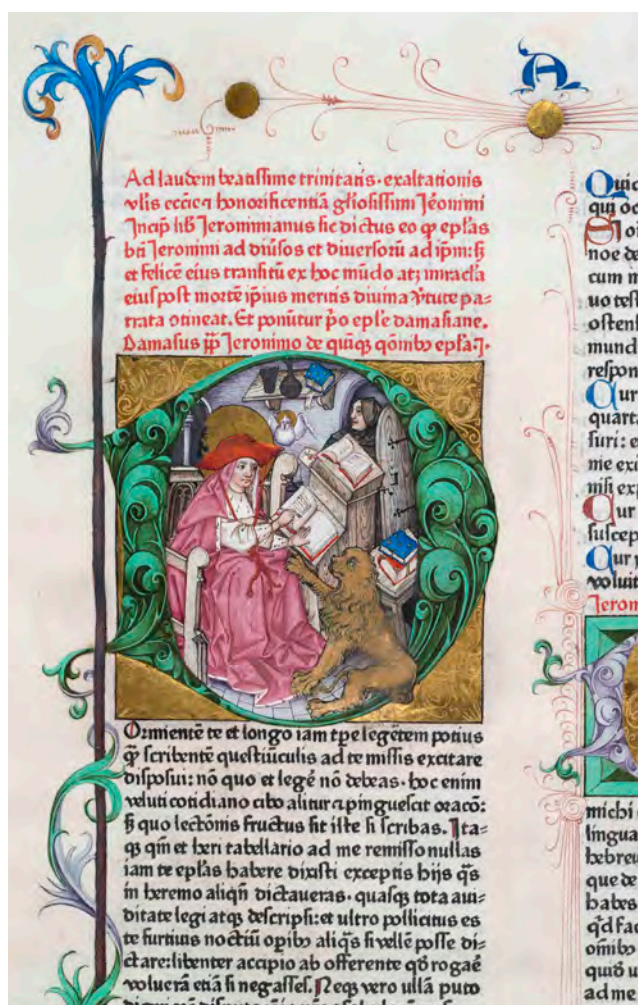 A
Ad laudem beatissime trinitatis·exaltationis
vlis eccīe ⁊ honorificentiā gliosissimi Jeōnimi
Incip lib Jeronimianus sic dictus eo ꝙ eplās
bti Jeronimi ad diūsos et diuersorū ad ipm: sꝫ
et felicē eius transitū ex hoc mūdo atꝫ miracla
eius post mortē ipius meritis diuina vtute pa=
trata otineat. Et ponūtur po eple damasiane.
Damasus pp Jeronimo de quiqꝫ qōnibo epla.j.
Ormientē te et longo iam tpe legētem potius
ꝙ scribentē questiūculis ad te missis excitare
disposui: nō quo et legē nō debeas. hoc enim
veluti cotidiano cibo alitur ⁊ pinguescit oracō:
sꝫ quo lectōnis fructus sit iste si scribas. Ita=
qꝫ qm et heri tabellario ad me remisso nullas
iam te eplas habere dixisti exceptis hijs qs
in heremo aliqn dictaueras. quasqꝫ tota aui=
ditate legi atqꝫ descripsi: et ultro pollicitus es
te furtiuis noctiū opibo aliqs si vellē posse di=
ctare: libenter accipio ab offerente qd rogare
voluerā etiā si negasses. Neqꝫ vero ullā puto
Quid
qui oc
noe de
cum m
uo test
ostens
mund
respon
Cur
quart
suri: e
me exu
nisi exp
Cur
suscep
Cur
voluit
Jeron
michi
lingua
hebreu
que de
habes
qd fac
omibo
quid u
ad me